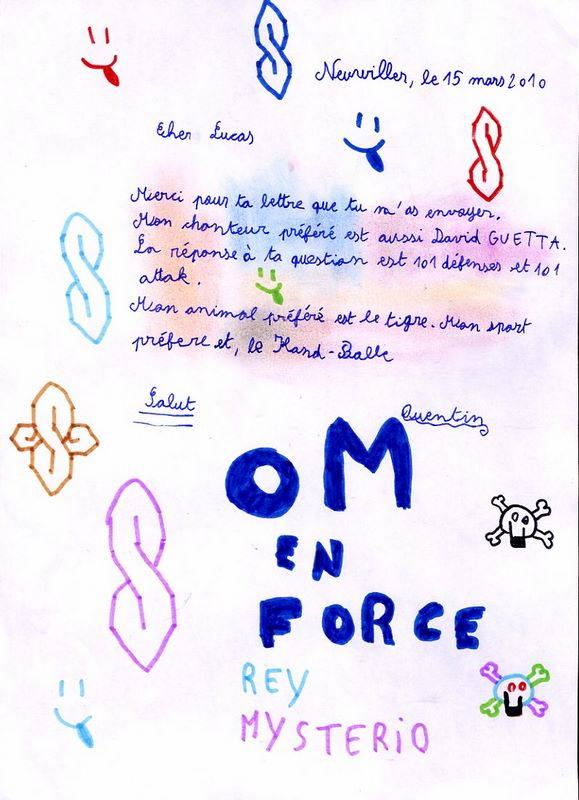 Neuwiller, le 15 mars 2010
Cher Lucas
Merci pour ta lettre que tu m'as envoyer.
Mon chanteur préféré est aussi David GUETTA.
La réponse à ta question est 101 défenses et 101
attak.
Mon animal préféré est le tigre. Mon sport
préfere et, le Hand-Balle
Salut
Quentin
OM
EN
FORCE
REY
MYSTERiO